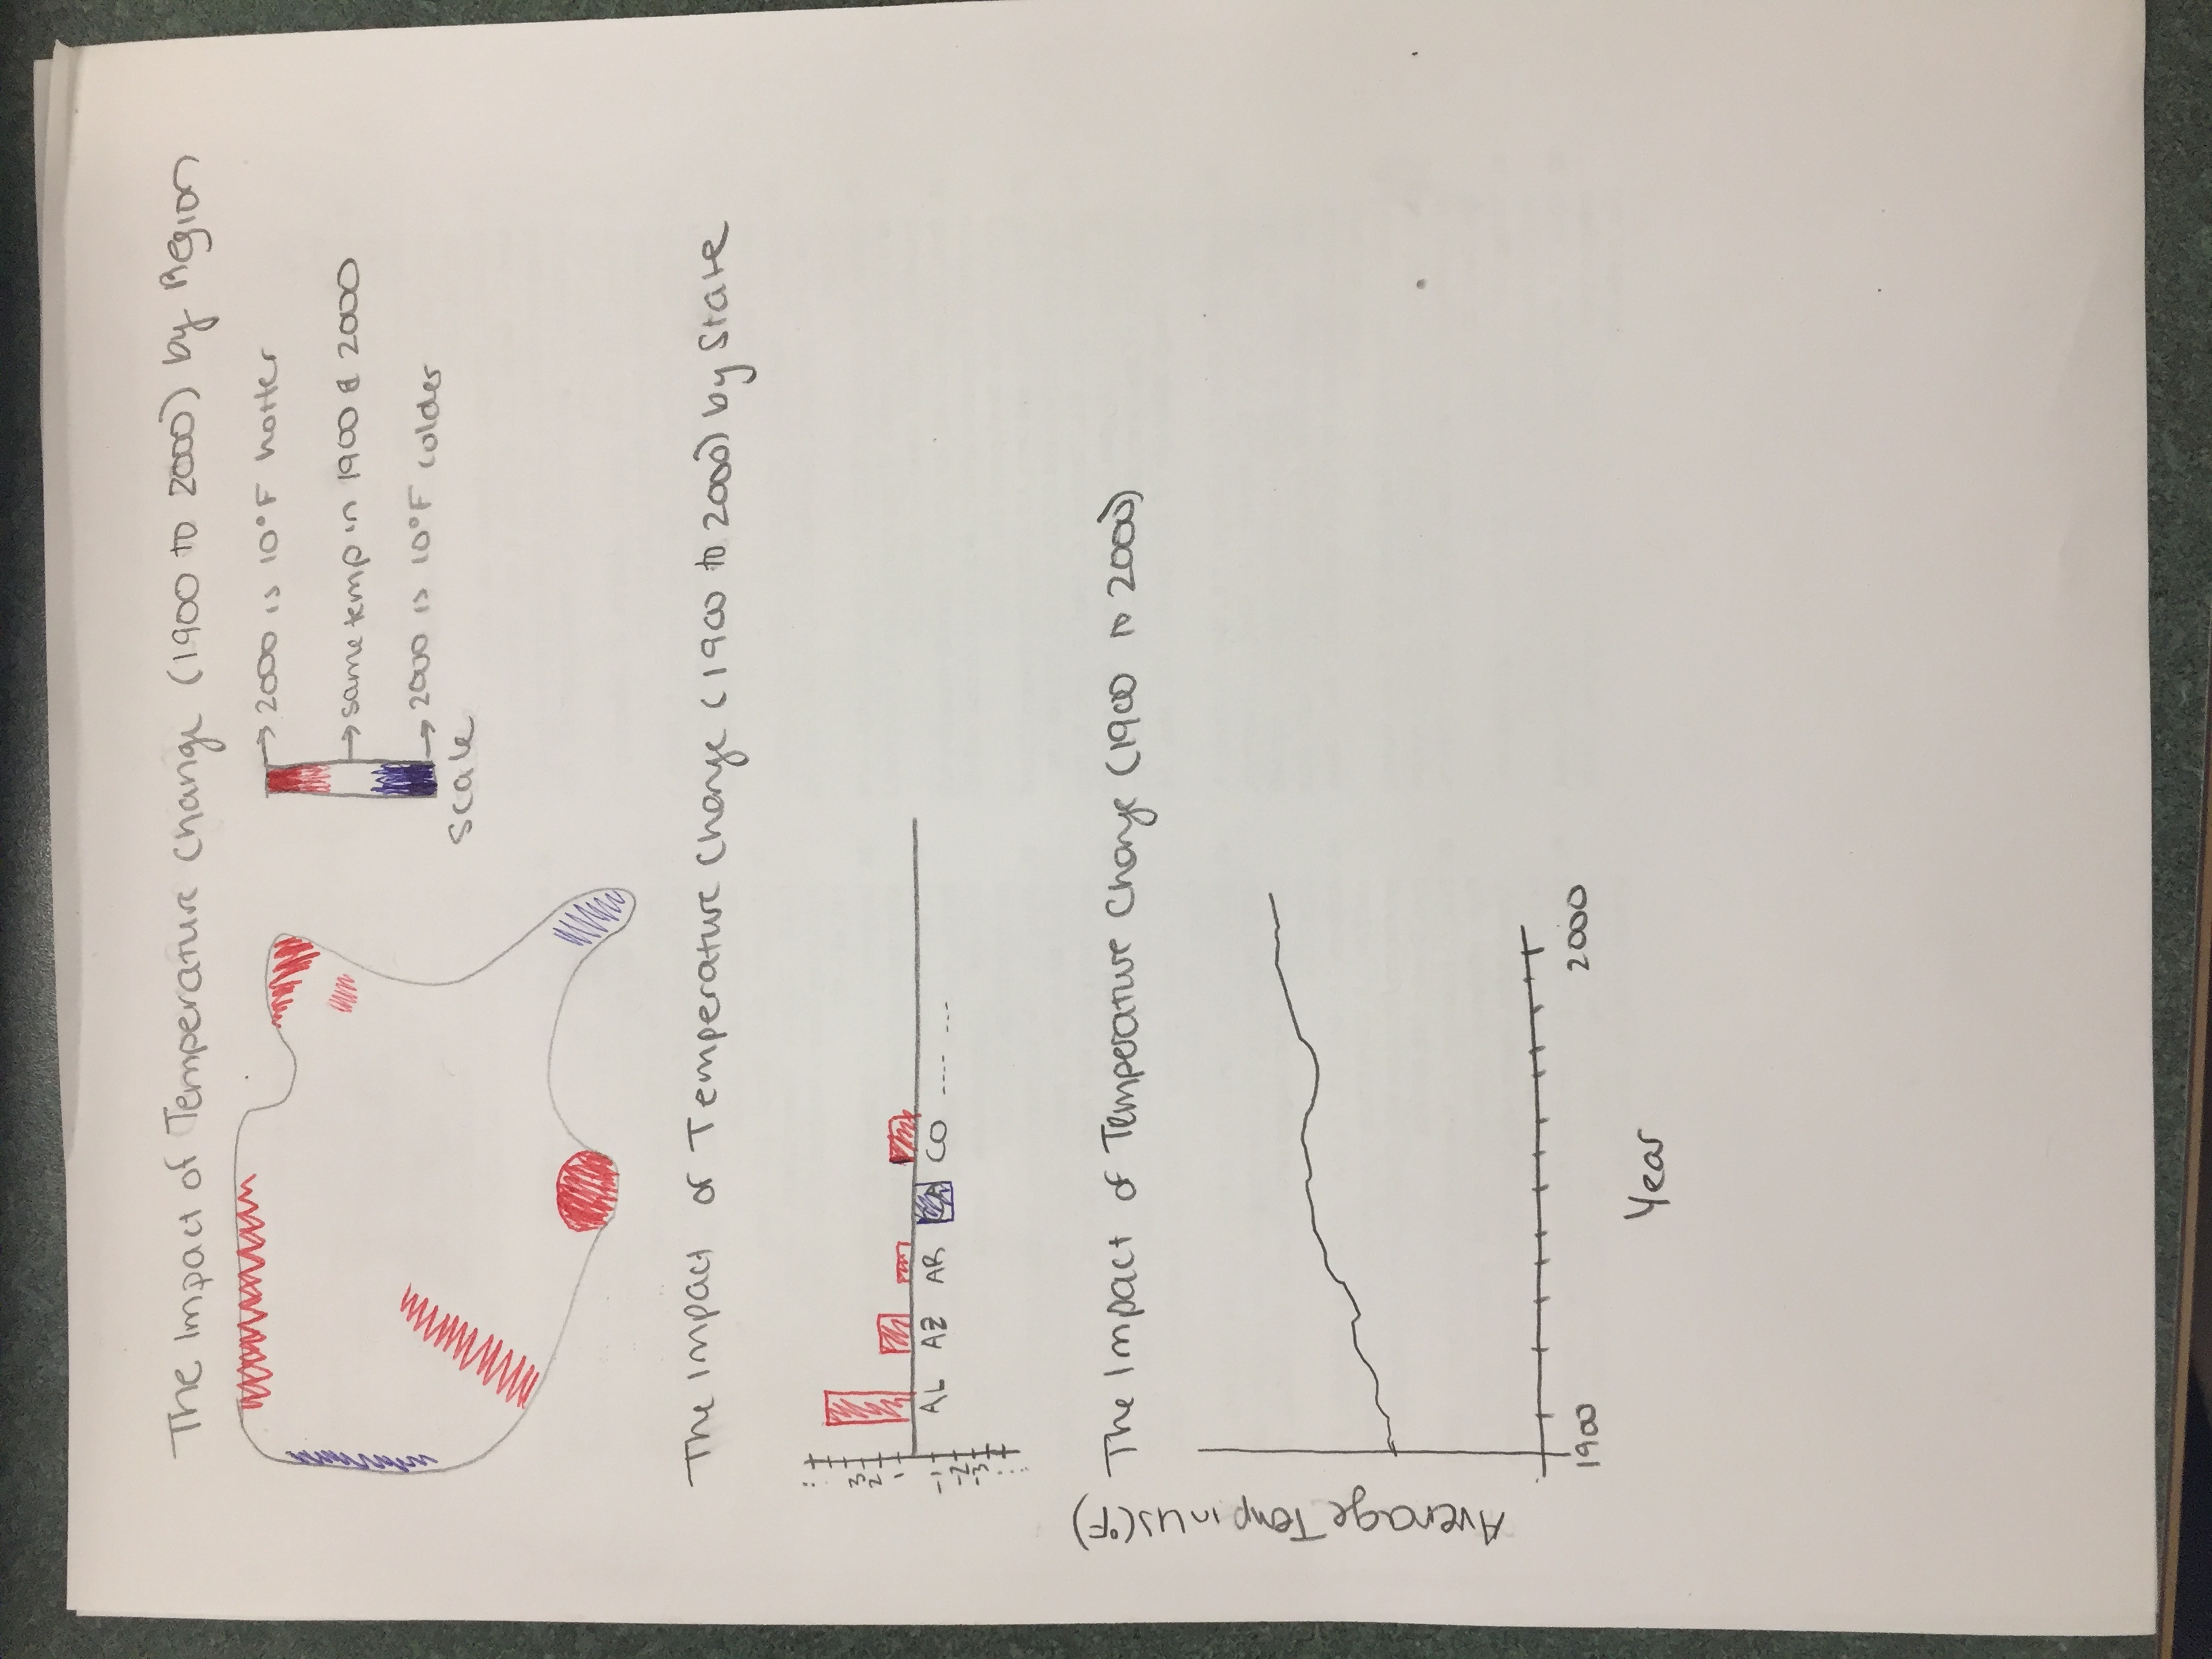 The Impact of Temperature Change (1900 to 2000) by Region
→ 2000 is 10°F hotter
→ same temp in 1900 & 2000
→ 2000 is 10°F colder
Scale
The Impact of Temperature Change (1900 to 2000) by State
3
2
1
-1
-2
-3
AL AZ AR CA CO ---- ---
The Impact of Temperature Change (1900 to 2000)
Average Temp in US (°F)
1900 2000
Year